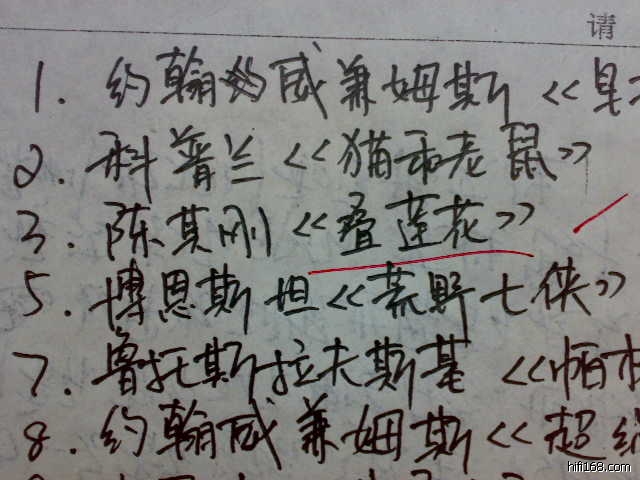 请
1. 约翰威兼姆斯《星
2. 科普兰《猫和老鼠》
3. 陈其刚《叠莲花》
5. 博恩斯坦《荒野七侠》
7. 鲁托斯拉夫斯基《帕
8. 约翰威兼姆斯《超级
hifi168.com